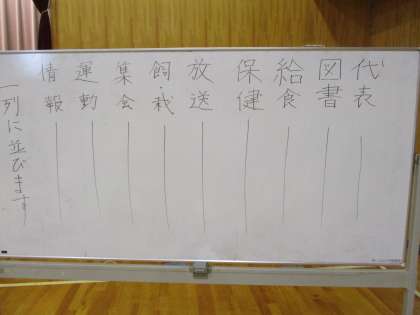 代表
図書
給食
保健
放送
飼・栽
集会
運動
情報
一列に並びます